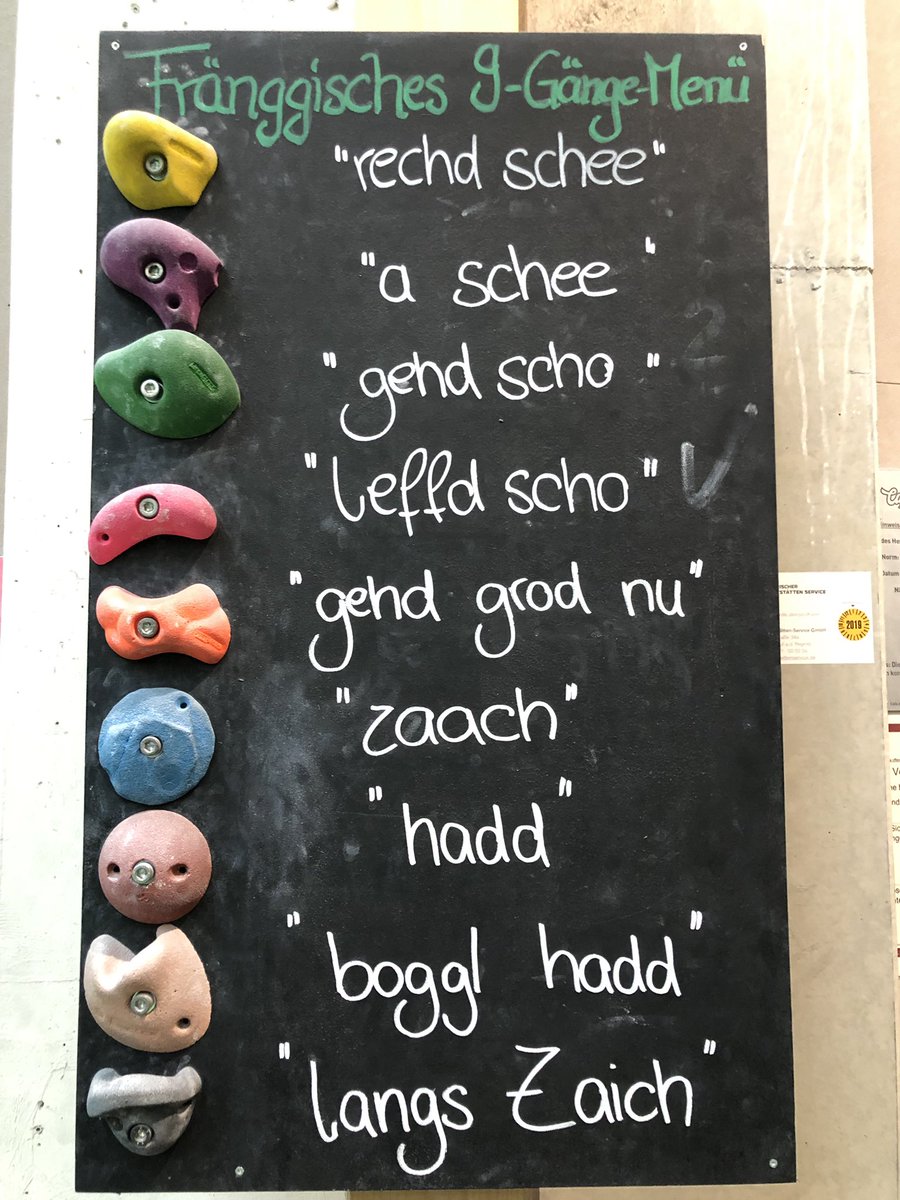 Fränggisches 9-Gänge-Menü
"rechd schee"
"a schee"
"gehd scho"
"leffd scho"
"gehd grod nu"
"zaach"
"hadd"
"boggl hadd"
"langs Zaich"
TSTÄTTEN SERVICE
2019